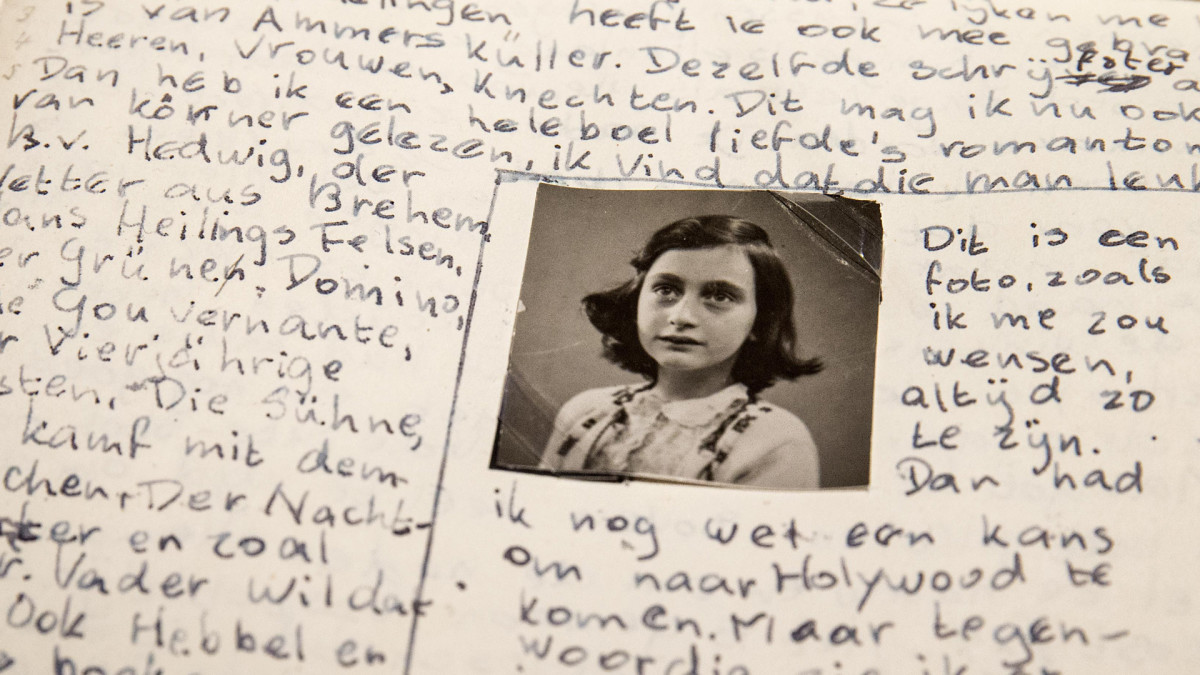 is van Ammers Küller. Dezelfde schrijfster
heeft ie ook mee gebra
Heeren, Vrouwen, Knechten. Dit mag ik nu ook
Dan heb ik een heleboel liefde's romanton
van körner gelezen, ik vind dat die man leuk
B.v. Hedwig, der
Vetter aus Brehem,
ans Heilings Felsen,
er Grünen, Domino,
ie Gouvernante,
r Vierjährige
sten, Die Sühne,
kamf mit dem
chen, Der Nacht-
ter en zoal
r. Vader wil dat
Ook Hebbel en
Dit is een
foto, zoals
ik me zou
wensen,
altijd zo
te zijn.
Dan had
ik nog wet een kans
om naar Holywood te
komen. Maar tegen-
woordig